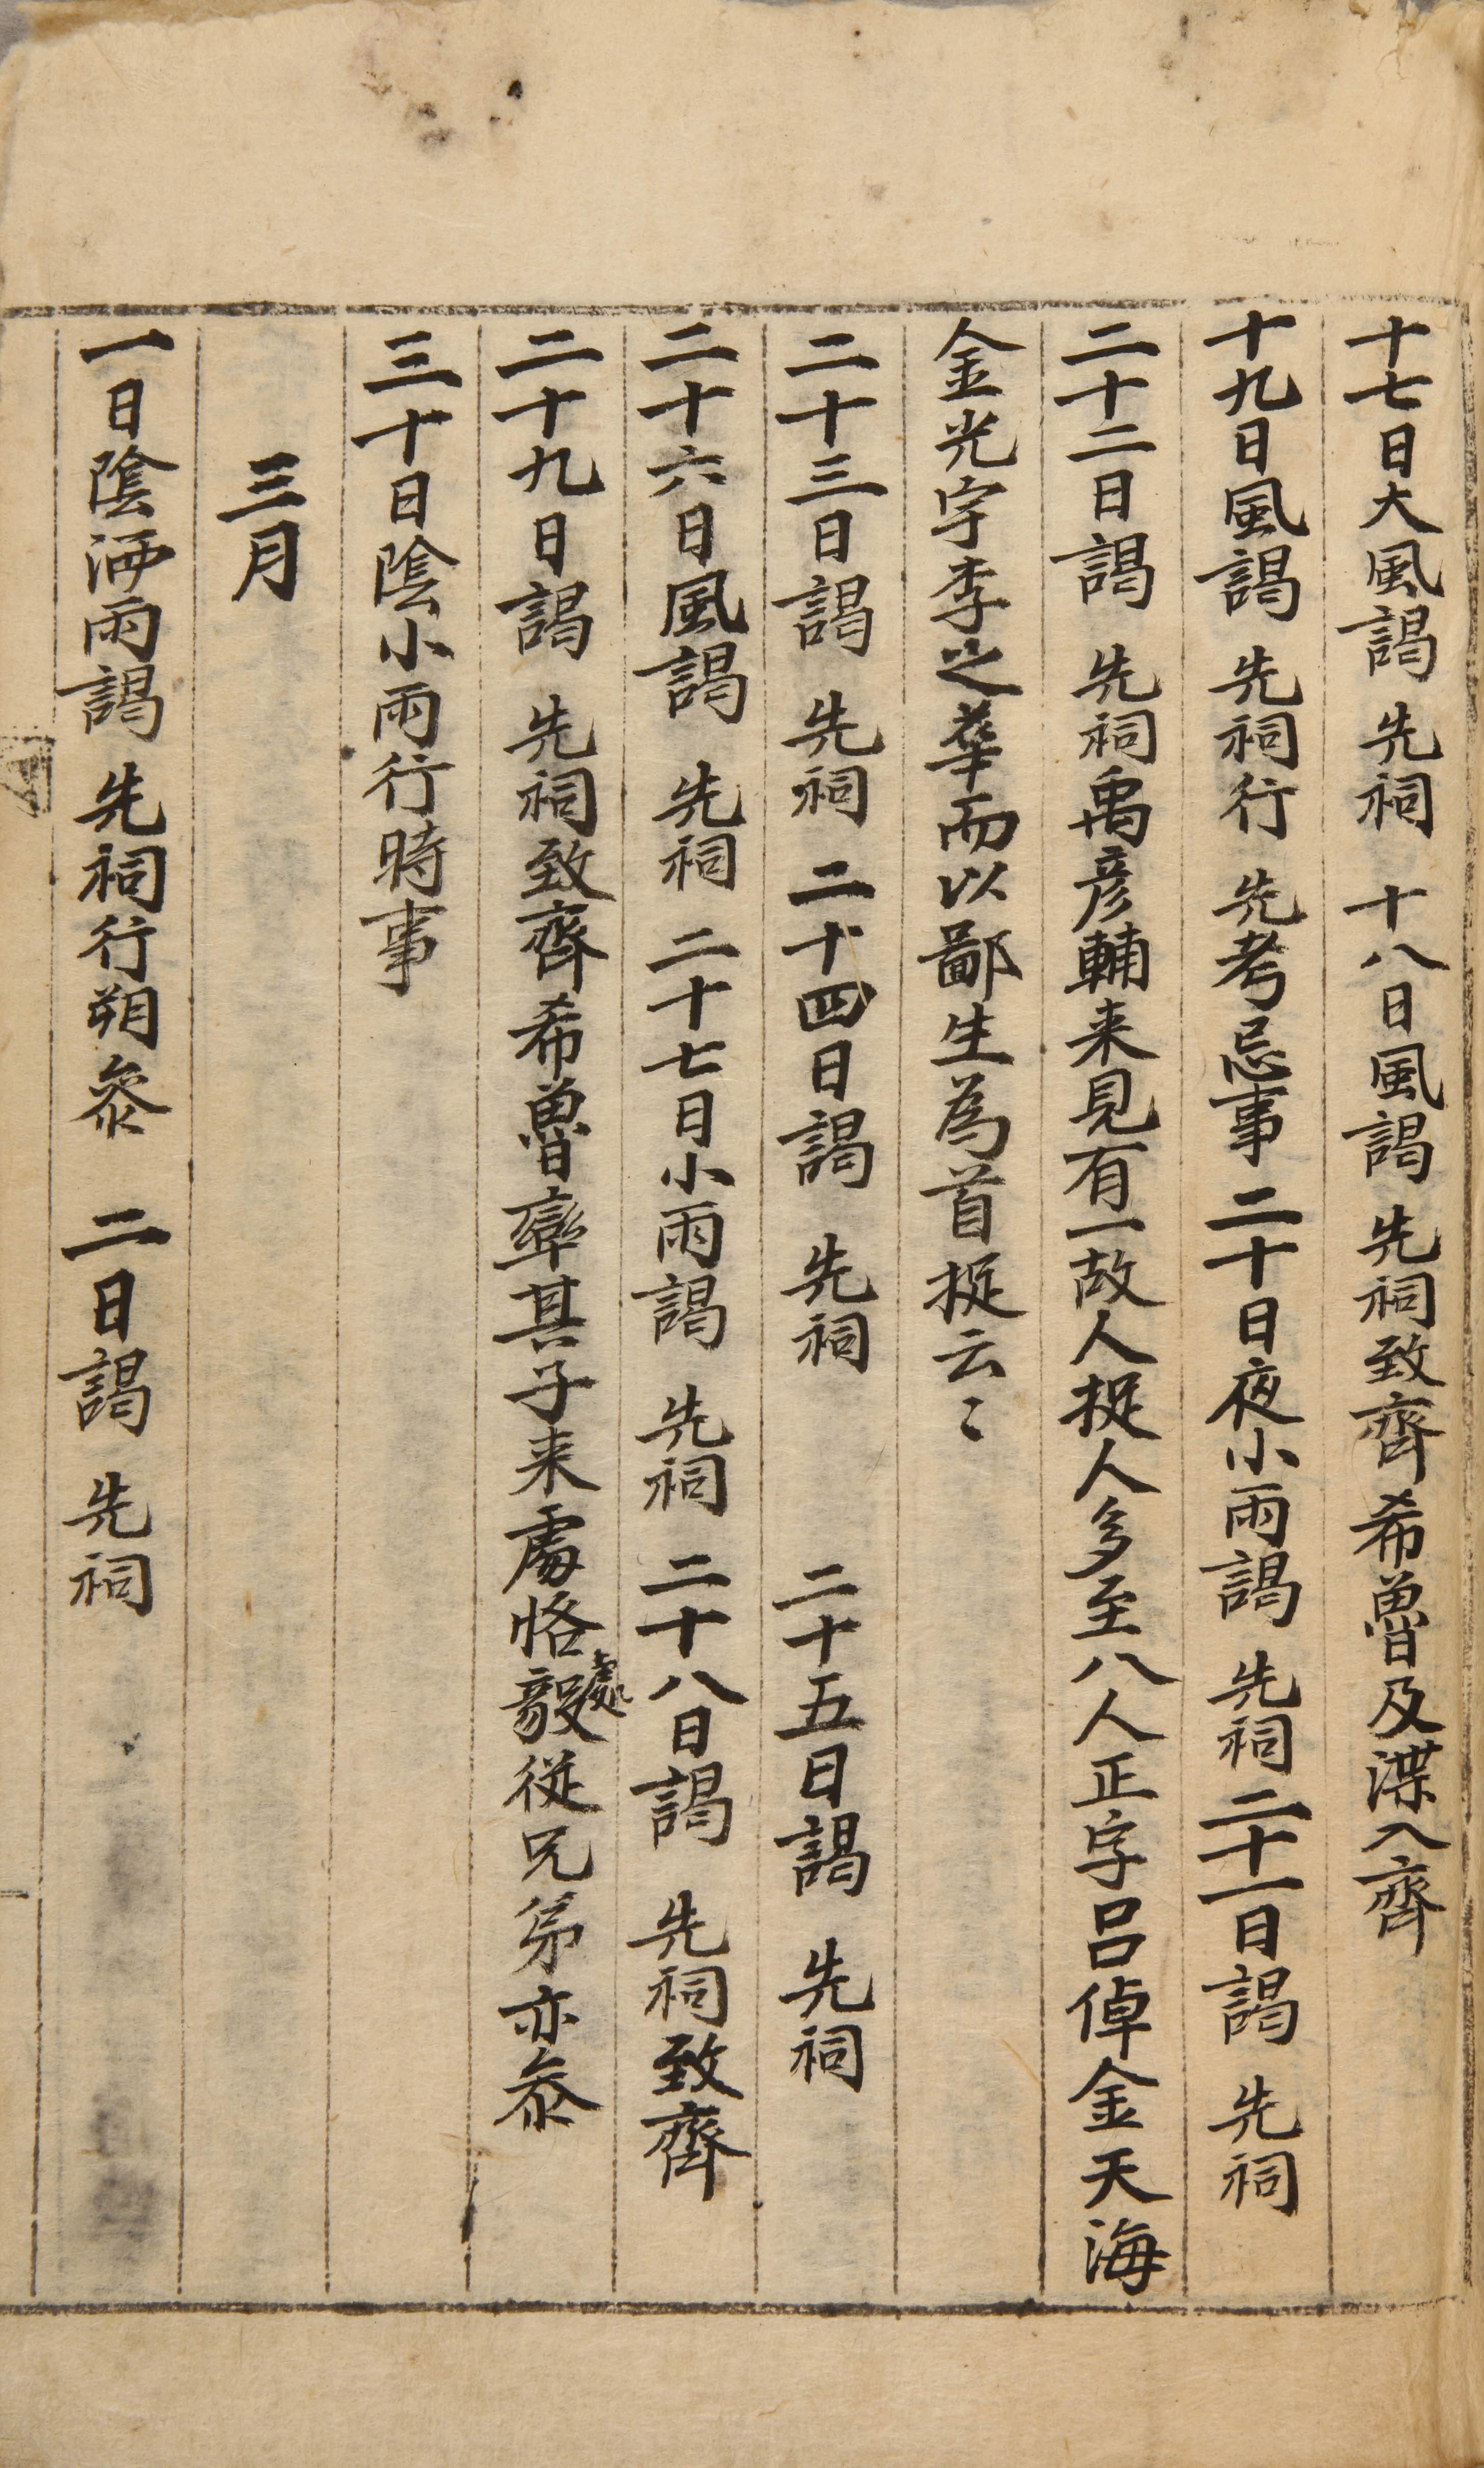 十七日大風謁 先祠 十八日風謁 先祠致齊希魯及渫入齊
十九日風謁 先祠行 先考忌事 二十日夜小雨謁 先祠 二十一日謁 先祠
二十二日謁 先祠禹彦輔来見有一故人捉人多至八人正字呂倬金天海
金光宇李之華而以鄙生為首捉云〻
二十三日謁 先祠 二十四日謁 先祠 二十五日謁 先祠
二十六日風謁 先祠 二十七日小雨謁 先祠 二十八日謁 先祠致齊
二十九日謁 先祠致齊希魯孿其子来處恪處毅従兄弟亦叅
三十日陰小雨行時事
三月
一日陰洒雨謁 先祠行朔叅 二日謁 先祠